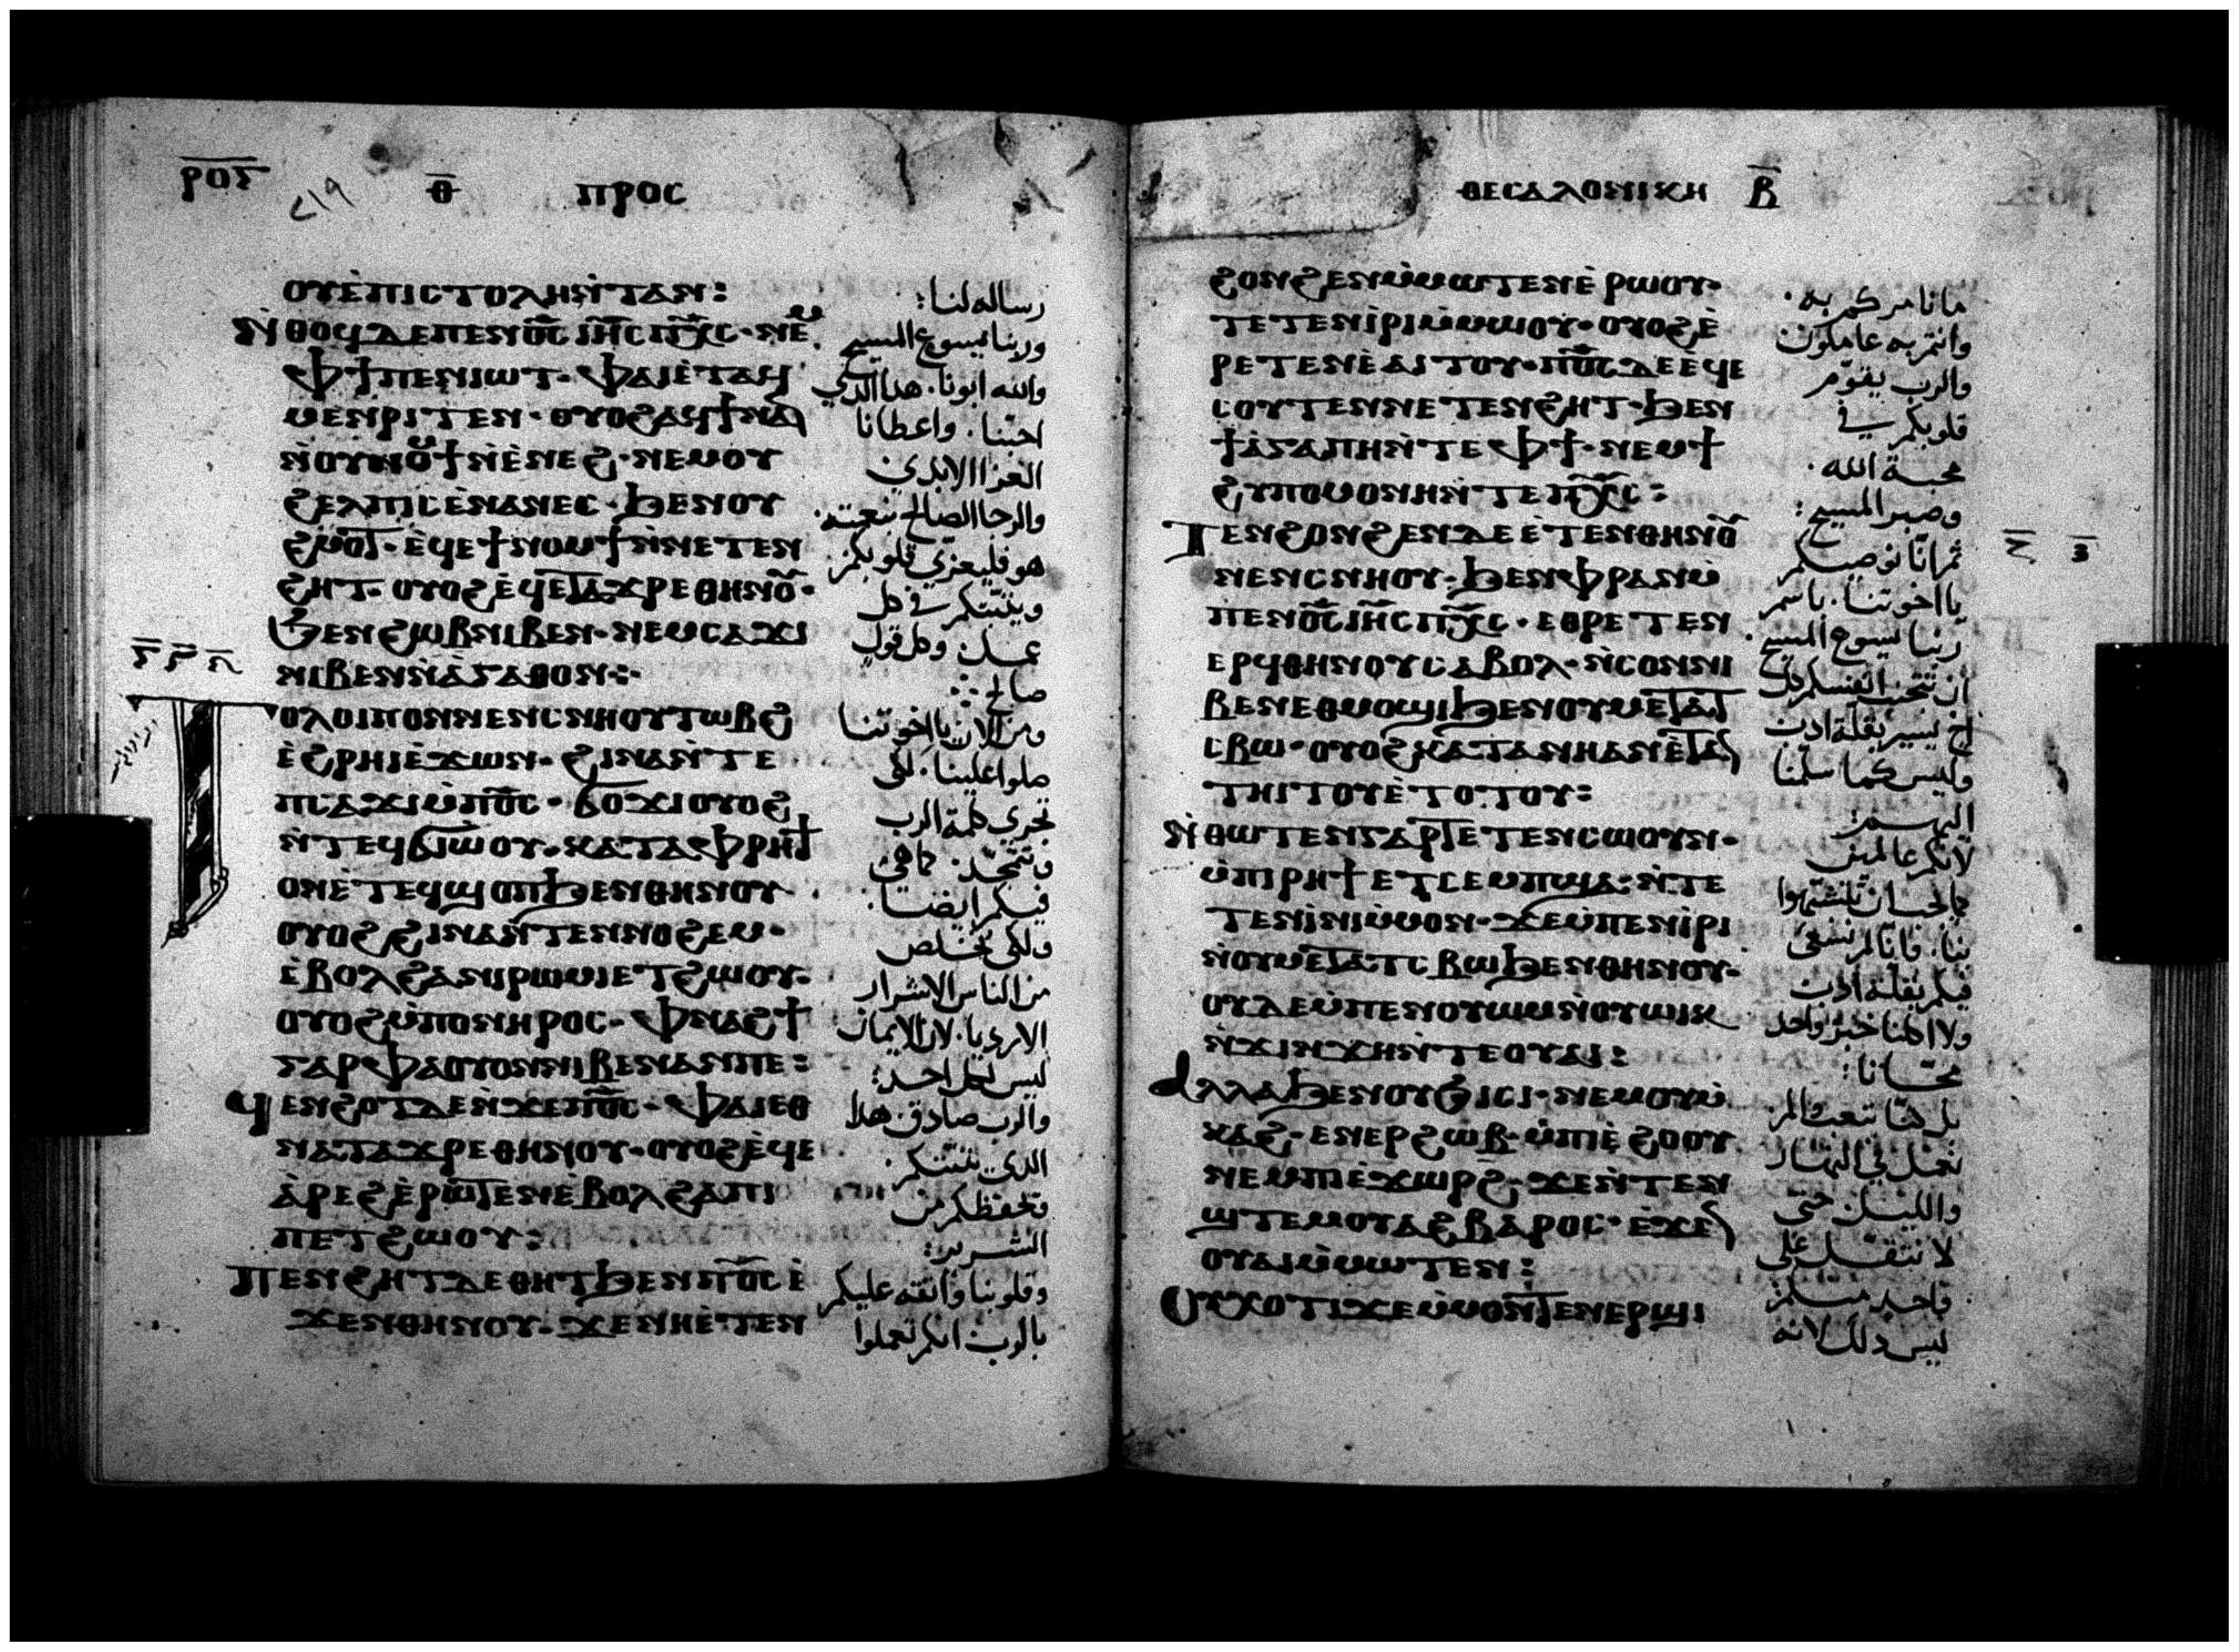 ⲣⲟⲋ
ⲑ ⲡⲣⲟⲥ
ⲟⲩⲉ̀ⲡⲓⲥⲧⲟⲗⲏⲛ̀ⲧⲁⲛ:
ⲛ̀ⲑⲟϥⲇⲉⲡⲉⲛⲟ̅ⲥ̅ ⲓⲏ̅ⲥ̅ ⲡⲭ̅ⲥ̅·ⲛⲉⲙ
ⲫϯⲡⲉⲛⲓⲱⲧ·ⲫⲁⲓⲉ̀ⲧⲁϥ
ⲙⲉⲛⲣⲓⲧⲉⲛ·ⲟⲩⲟϩⲁϥϯⲛⲁⲛ
ⲛ̀ⲟⲩⲛⲟⲙϯⲛ̀ⲉ̀ⲛⲉϩ·ⲛⲉⲙⲟⲩ
ϩⲉⲗⲡⲓⲥⲉ̀ⲛⲁⲛⲉⲥ·ϧⲉⲛⲟⲩ
ϩⲙⲟⲧ·ⲉ̀ϥⲉϯⲛⲟⲙϯⲛ̀ⲛⲉⲧⲉⲛ
ϩⲏⲧ·ⲟⲩⲟϩⲉ̀ϥⲉⲧⲁϫⲣⲉⲑⲏⲛⲟⲩ·
ϧⲉⲛϩⲱⲃⲛⲓⲃⲉⲛ·ⲛⲉⲙⲥⲁϫⲓ
ⲛⲓⲃⲉⲛⲛ̀ⲁ̀ⲅⲁⲑⲟⲛ:·
ⲧⲟⲗⲟⲓⲡⲟⲛⲛⲉⲛⲥⲛⲏⲟⲩⲧⲱⲃϩ
ⲉ̀ϩⲣⲏⲓⲉ̀ϫⲱⲛ·ϩⲓⲛⲁⲛ̀ⲧⲉ
ⲡⲥⲁϫⲓⲙ̀ⲡⲟ̅ⲥ̅·ϭⲟϫⲓⲟⲩⲟϩ
ⲛ̀ⲧⲉϥϭⲓⲱⲟⲩ·ⲕⲁⲧⲁⲫⲣⲏϯ
ⲟⲛⲉ̀ⲧⲉϥϣⲟⲡϧⲉⲛⲑⲏⲛⲟⲩ·
ⲟⲩⲟϩϩⲓⲛⲁⲛ̀ⲧⲉⲛⲛⲟϩⲉⲙ·
ⲉ̀ⲃⲟⲗϩⲁⲛⲓⲣⲱⲙⲓⲉⲧϩⲱⲟⲩ·
ⲟⲩⲟϩⲙ̀ⲡⲟⲛⲏⲣⲟⲥ·ⲫⲛⲁϩϯ
ⲅⲁⲣⲫⲁⲟⲩⲟⲛⲛⲓⲃⲉⲛⲁⲛⲡⲉ:
ϥⲉⲛϩⲟⲧⲇⲉⲛ̀ϫⲉⲡⲟ̅ⲥ̅·ⲫⲁⲓⲉⲑ
ⲛⲁⲧⲁϫⲣⲉⲑⲏⲛⲟⲩ·ⲟⲩⲟϩⲉ̀ϥⲉ
ⲁ̀ⲣⲉϩⲉ̀ⲣⲱⲧⲉⲛⲉ̀ⲃⲟⲗϩⲁⲡⲓ
ⲡⲉⲧϩⲱⲟⲩ:
ⲡⲉⲛϩⲏⲧⲇⲉⲑⲏⲧϧⲉⲛⲡⲟ̅ⲥ̅ⲉ̀
ϫⲉⲛⲑⲏⲛⲟⲩ·ϫⲉⲛⲏⲉ̀ⲧⲉⲛ
رساله لنا:
وربنا يسوع المسيح
والله ابونا· هدا الدي
احبنا· واعطانا
العزا الابدى
والرجا الصالح بنعمته·
هو فليعزي قلوبكم
ويثبتكم في كل
عمل· وكل قول
صالح:
ومن الان يا اخوتنا
صلوا علينا· لكي
تجري كلمة الرب
وتتمجد· كما هي
فيكم ايضا·
ولكى نخلص
من الناس الاشرار
الارديا· لان الايمان
ليس لكل احد:
والرب صادق· هدا
الدي يثبتكم·
ويحفظكم من
الشرير:
وقلوبنا واثقه عليكم
بالرب· انكم تعملوا
ⲑⲉⲥⲁⲗⲟⲛⲓⲕⲏ ⲃ
ϩⲟⲛϩⲉⲛⲙ̀ⲙⲱⲧⲉⲛⲉ̀ⲣⲱⲟⲩ·
ⲧⲉⲧⲉⲛⲓ̀ⲣⲓⲙ̀ⲙⲱⲟⲩ·ⲟⲩⲟϩⲉ̀
ⲣⲉⲧⲉⲛⲉ̀ⲁⲓⲧⲟⲩ·ⲡⲟ̅ⲥ̅ⲇⲉⲉ̀ϥⲉ
ⲥⲟⲩⲧⲉⲛⲛⲉⲧⲉⲛϩⲏⲧ·ϧⲉⲛ
ϯⲁ̀ⲅⲁⲡⲏⲛ̀ⲧⲉⲫϯ·ⲛⲉⲙϯ
ϩⲩⲡⲟⲙⲟⲛⲏⲛ̀ⲧⲉⲡⲭ̅ⲥ̅:
ⲧⲉⲛϩⲟⲛϩⲉⲛⲇⲉⲉ̀ⲧⲉⲛⲑⲏⲛⲟⲩ
ⲛⲉⲛⲥⲛⲏⲟⲩ·ϧⲉⲛⲫⲣⲁⲛⲙ̀
ⲡⲉⲛⲟ̅ⲥ̅ⲓⲏ̅ⲥ̅ⲡⲭ̅ⲥ̅·ⲉⲑⲣⲉⲧⲉⲛ
ⲉⲣϥⲑⲏⲛⲟⲩⲥⲁⲃⲟⲗ·ⲛ̀ⲥⲟⲛⲛⲓ
ⲃⲉⲛⲉⲑⲙⲟϣⲓϧⲉⲛⲟⲩⲙⲉⲧⲁⲧ
ⲥⲃⲱ·ⲟⲩⲟϩⲕⲁⲧⲁⲛⲏⲁⲛⲉ̀ⲧⲁⲛ
ⲧⲏⲓⲧⲟⲩⲉ̀ⲧⲟⲧⲟⲩ:
ⲛ̀ⲑⲱⲧⲉⲛⲅⲁⲣⲧⲉⲧⲉⲛⲥⲱⲟⲩⲛ·
ⲙ̀ⲡⲓⲣⲏϯⲉⲧⲥⲉⲙⲡϣⲁ·ⲛ̀ⲧⲉ
ⲧⲉⲛⲓ̀ⲛⲓⲙ̀ⲙⲟⲛ·ϫⲉⲙ̀ⲡⲉⲛⲓ̀ⲣⲓ
ⲛ̀ⲟⲩⲙⲉⲧⲁⲧⲥⲃⲱϧⲉⲛⲑⲏⲛⲟⲩ·
ⲟⲩⲇⲉⲙ̀ⲡⲉⲛⲟⲩⲱⲙⲛ̀ⲟⲩⲱⲓⲕ
ⲛ̀ϫⲓⲛϫⲏⲛ̀ⲧⲉⲟⲩⲁⲓ:
ⲁⲗⲗⲁϧⲉⲛⲟⲩϧⲓⲥⲓ·ⲛⲉⲙⲟⲩⲙ̀
ⲕⲁϩ·ⲉⲛⲉⲣϩⲱⲃ·ⲙ̀ⲡⲓⲉ̀ϩⲟⲟⲩ
ⲛⲉⲙⲡⲓⲉ̀ϫⲱⲣϩ·ϫⲉⲛ̀ⲧⲉⲛ
ϣⲧⲉⲙⲟⲩⲁϩⲃⲁⲣⲟⲥ·ⲉ̀ϫⲉⲛ
ⲟⲩⲁⲓⲙ̀ⲙⲱⲧⲉⲛ:
ⲟⲩⲭⲟⲧⲓϫⲉⲙ̀ⲙⲟⲛⲧⲉⲛⲉⲣϣⲓ
ما نامركم به·
وانتم به عاملون
والرب يقوم
قلوبكم في
محبة الله·
وصبر المسيح:
ثم انا نوصيكم
يا اخوتنا· باسم
ربنا يسوع المسيح·
اخ يسير بقلة ادب
وليس كما سلمنا
اليهم:
لانكم عالمين
بنا· فانا لم نشئ
فيكم بقلة ادب
ولا اكلنا خبز واحد
مجانا:
نعمل في النهار
والليل حتى
لا نثقل على
واحد منكم:
ليس دلك لانه